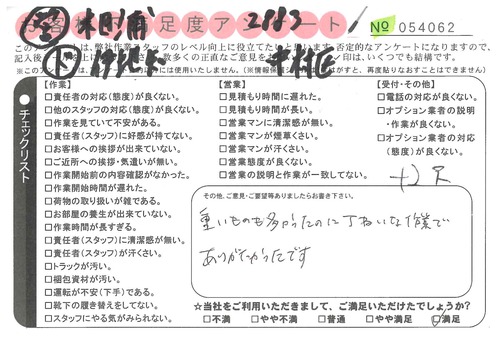 お客様満足度アンケート
2183
No 054062
このアンケートは、弊社作業スタッフのレベル向上に役立てたいと思います。否定的なアンケートになりますので、
【作業】
□責任者の対応(態度)が良くない。
□他のスタッフの対応(態度)が良くない。
□作業を見ていて不安がある。
□責任者(スタッフ)に好感が持てない。
□お客様への挨拶が出来ていない。
□ご近所への挨拶・気遣いが無い。
□作業開始前の内容確認がなかった。
□作業開始時間が遅れた。
□荷物の取り扱いが雑である。
□お部屋の養生が出来ていない。
□作業時間が長すぎる。
□責任者(スタッフ)に清潔感が無い。
□責任者(スタッフ)が汗くさい。
□トラックが汚い。
□梱包資材が汚い。
□運転が不安(下手)である。
□靴下の履き替えをしてない。
□スタッフにやる気がみられない。
【営業】
□見積もり時間に遅れた。
□見積もり時間が長い。
□営業マンに清潔感が無い。
□営業マンが煙草くさい。
□営業マンが汗くさい。
□営業態度が良くない。
□営業の説明と作業が一致してない。
【受付・その他】
□電話の対応が良くない。
□オプション業者の説明
・作業が良くない。
□オプション業者の対応
(態度)が良くない。
チェックリスト
その他、ご意見・ご要望等ありましたらお書き下さい。
重いものも多かったのに丁ねいな作業で
ありがたかったです
☆当社をご利用いただきまして、ご満足いただけたでしょうか?
□不満 □やや不満 □普通 □やや満足 □満足